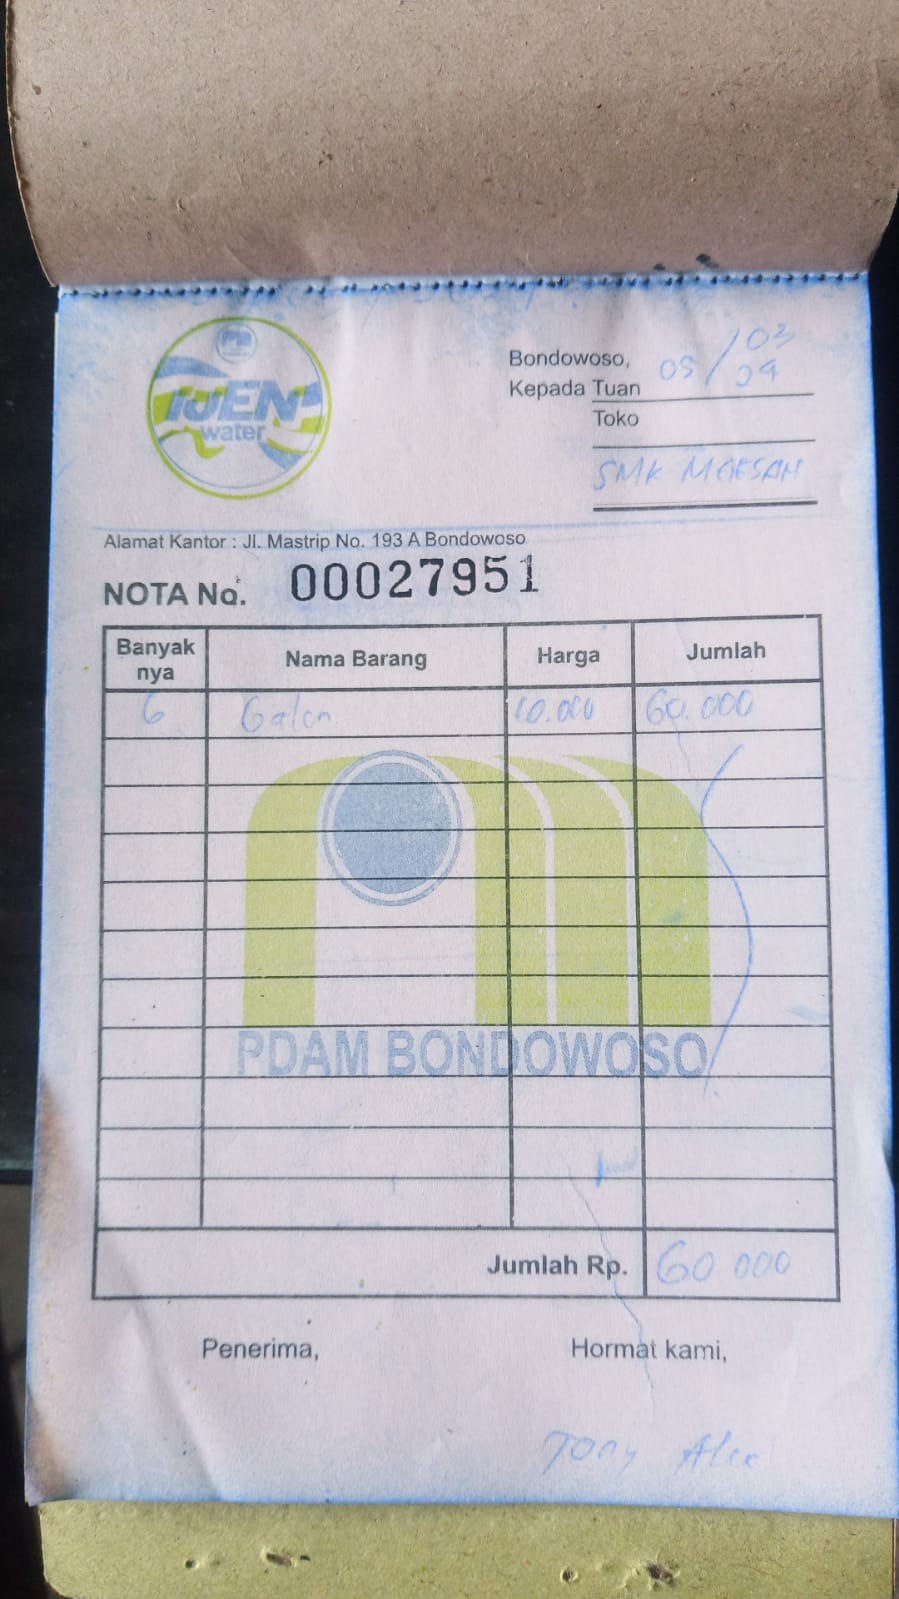 IJEN
water
Bondowoso, 05/03
Kepada Tuan 24
Toko
SMK MAESAN
Alamat Kantor : Jl. Mastrip No. 193 A Bondowoso
NOTA No. 00027951
Banyak nya Nama Barang Harga Jumlah
6 Galon 10.000 60.000
PDAM BONDOWOSO
Jumlah Rp. 60 000
Penerima, Hormat kami,
Tony